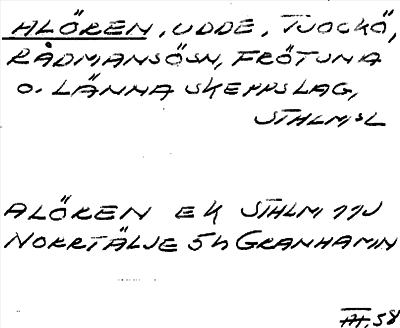 ALÖREN, UDDE, TJOCKÖ,
RÅDMANSÖSN, FRÖTUNA
O. LÄNNA SKEPPSLAG,
STHLM,SL
ALÖREN EK STHLM 11J
NORRTÄLJE 5h GRANHAMN
III.58